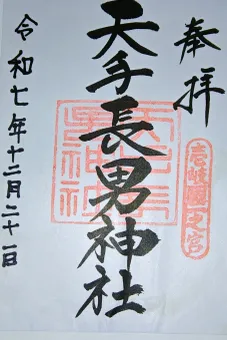 奉拝
壱岐國一之宮
天手長男神社
令和七年十二月二十一日